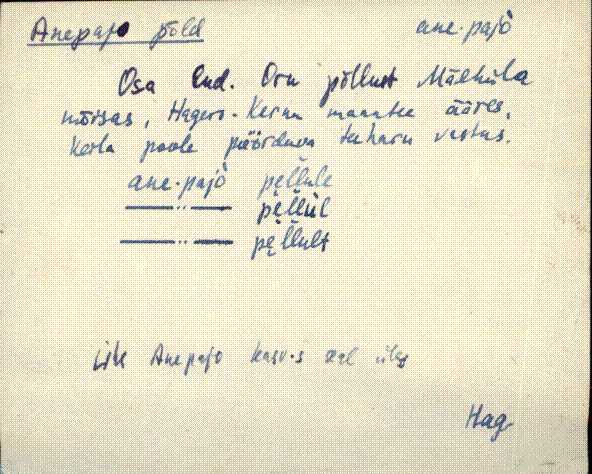 Anepajo põld ane·pajò
Osa End. Oru põllust Mäeküla
mõisas, Hageri - maantee ääres,
poole pöörduva teeharu vastas.
ane·pajò pe̮l̆lule
—〃— pe̮l̆lùl
—〃— pe̮l̆lult
Anepajo kasv·s eal üles
Hag